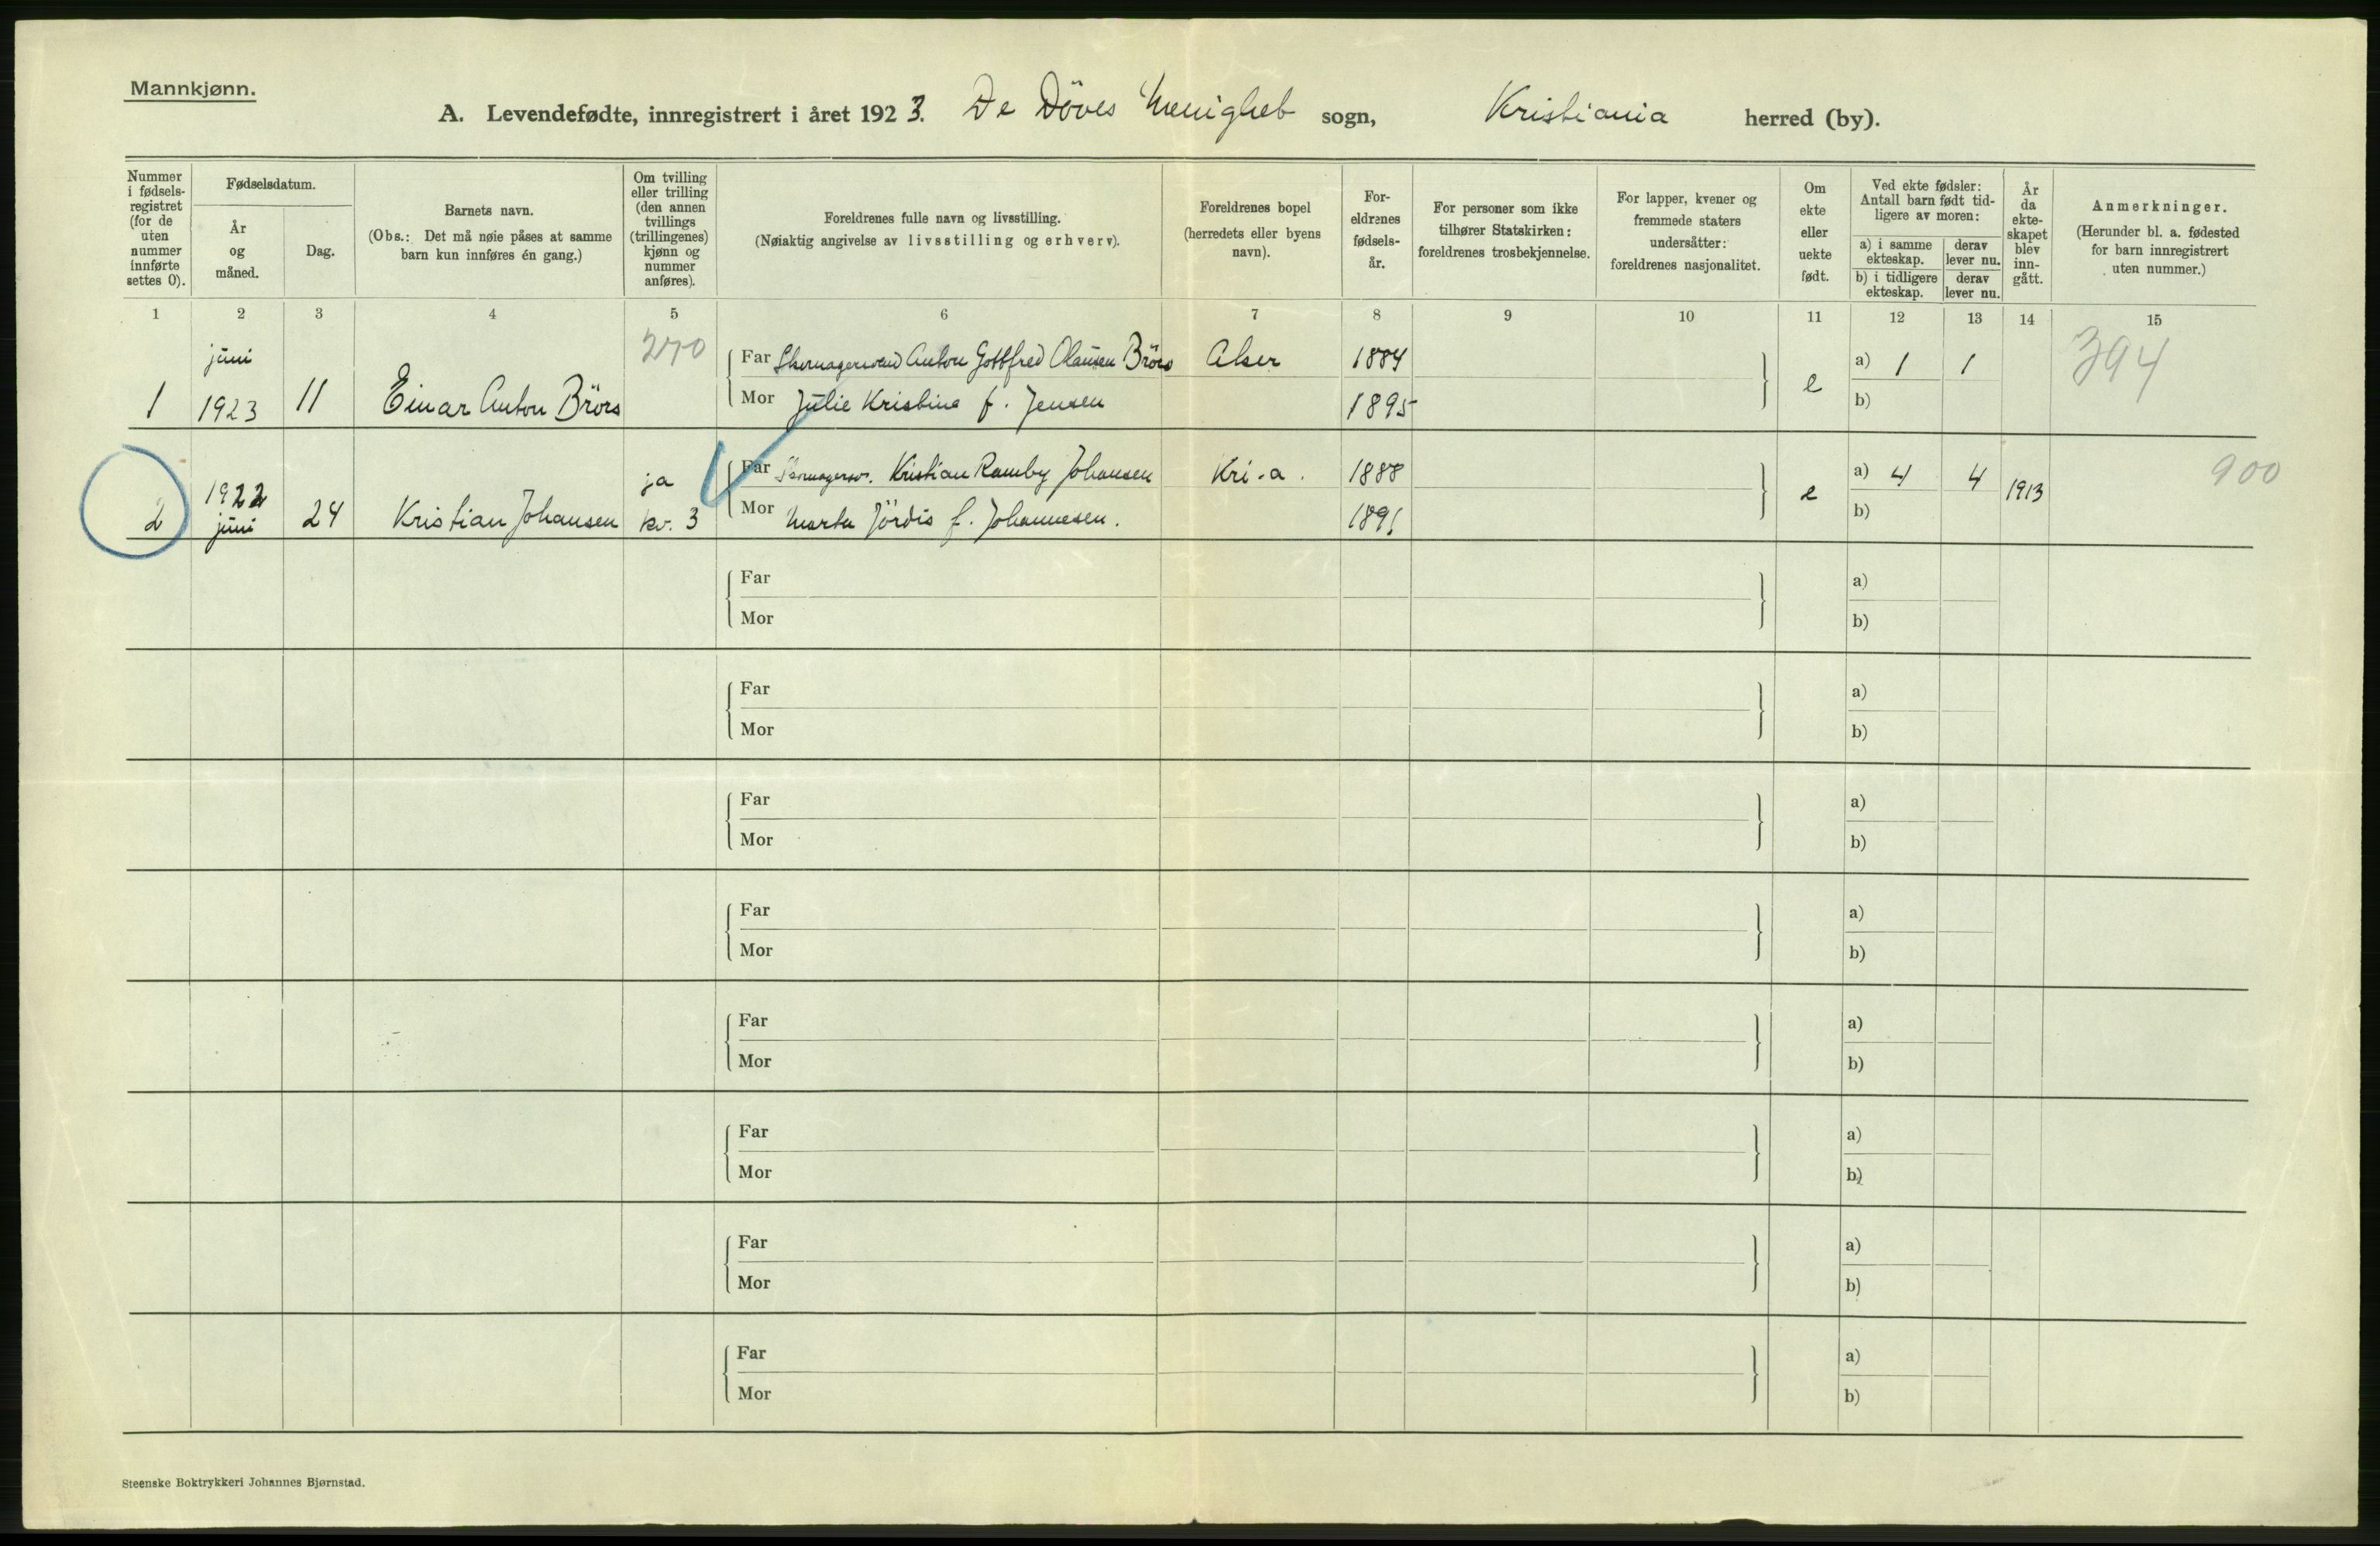 Mannkjønn.
A. Levendefødte, innregistrert i året 1923. De Döves Menighet sogn, Kristiania herred (by).
Nummer
i fødsels-
registret
(for de
uten
nummer
innførte
settes 0).
Fødselsdatum.
År
og
måned.
Dag.
Barnets navn.
(Obs.: Det må nøie påses at samme
barn kun innføres én gang.)
Om tvilling
eller trilling
(den annen
tvillings
(trillingenes)
kjønn og
nummer
anføres).
Foreldrenes fulle navn og livsstilling.
(Nøiaktig angivelse av livsstilling og erhverv).
Foreldrenes bopel
(herredets eller byens
navn).
For-
eldrenes
fødsels-
år.
For personer som ikke
tilhører Statskirken:
foreldrenes trosbekjennelse.
For lapper, kvener og
fremmede staters
undersåtter:
foreldrenes nasjonalitet.
Om
ekte
eller
uekte
født.
Ved ekte fødsler:
Antall barn født tid-
ligere av moren:
a) i samme
ekteskap.
derav
lever nu.
b) i tidligere
ekteskap.
derav
lever nu.
År
da
ekte-
skapet
blev
inn-
gått.
Anmerkninger.
(Herunder bl. a. fødested
for barn innregistrert
uten nummer.)
1 2 3 4 5 6 7 8 9 10 11 12 13 14 15
juni 270 Far Anton Gottfred Olausen Brörs Aker 1884 a) 1 1 394
1 1923 11 Einar Anton Brörs Mor Julie Kristine f. Jensen 1895 e b)
1922 ja Far Kristian Ramby Johansen Kri.a. 1888 a) 4 4 1913 900
2 juni 24 Kristian Johansen kv. 3 Mor Marta Jördis f. Johannesen. 1891 e b)
Far a)
Mor b)
Far a)
Mor b)
Far a)
Mor b)
Far a)
Mor b)
Far a)
Mor b)
Far a)
Mor b)
Far a)
Mor b)
Far a)
Mor b)
Steenske Boktrykkeri Johannes Bjørnstad.